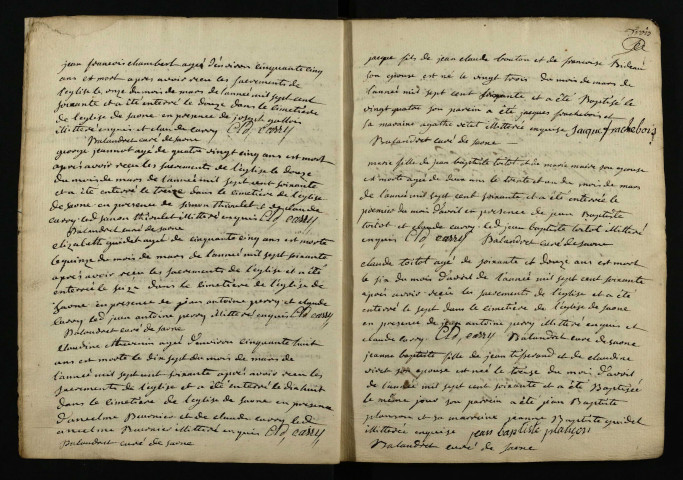 jean francois chambert agé d'environ cinquante cinq
ans est mort apres avoir recu les sacrements de
l'eglise le onze du mois de mars de l'année mil sept cent
soixante et a été enterré le douze dans le cimetière
de l'eglise de saone en presence de joseph
illitteré et claude carry Cld carry
Balandret curé de saone
george jeannot agé de quatre vingt cinq ans est mort
après avoir recu les sacrements de l'eglise le douze
du mois de mars de l'année mil sept cent soixante
et a été enterré le treize dans le cimetière de l'eglise
de saone en presence de simon thioulet et de claude
carry led simon thioulet illitteré enquis Cld carry
Balandret curé de saone
elizabeth guidet agé de cinquante cinq ans est morte
le quinze du mois de mars de l'année mil sept soixante
après avoir recu les sacrements de l'eglise et a été
enterré le seize dans le cimetière de l'eglise de
saone en presence de jean antoine perry et claude
carry led jean antoine perry illitteré enquis Cld carry
Balandret curé de saone
claudine thevenin agé d'environ cinquante huit
ans est morte le dix sept du mois de mars de
l'année mil sept cent soixante après avoir recu les
sacrements de l'eglise et a été enterré le dixhuit
dans le cimetière de l'eglise de saone en presence
d'anselme Buvenier et de claude carry led
anselme Buvenier illitteré enquis Cld carry
Balandret curé de saone
trois
jacque fils de jean claude bouton et de francoise
son epouse est né le vingt trois du mois de mars de
l'année mil sept cent soixante et a été Baptisé le
vingt quatre son parain a été jacques frachebois et
sa maraine agathe illitterée enquise Jacque frachebois
Balandret curé de saone
marie fille de jean baptiste toitot et de marie maire son epouse
est morte agé de deux ans le trente et un du mois de mars
de l'année mil sept cent soixante et a été enterrée le
premier du mois d'avril en presence de jean Baptiste
toitot et claude carry led jean baptiste toitot illitteré
enquis Cld carry Balandret curé de saone
claude toitot agé de soixante et douze ans est mort
le six du mois d'avril de l'année mil sept cent soixante
après avoir recu les sacrements de l'eglise et a été
enterré le sept dans le cimetière de l'eglise de saone
en presence de jean antoine perry illitteré enquis et
claude carry Cld carry Balandret curé de saone
jeanne baptiste fille de jean tisserand et de claudine
viret son epouse est née le treize du mois d'avril
de l'année mil sept cent soixante et a été Baptisée
le même jour son parain a été jean Baptiste
plancon et sa maraine jeanne Baptiste guidet
illitterée enquise jean baptiste plançon
Balandret curé de saone